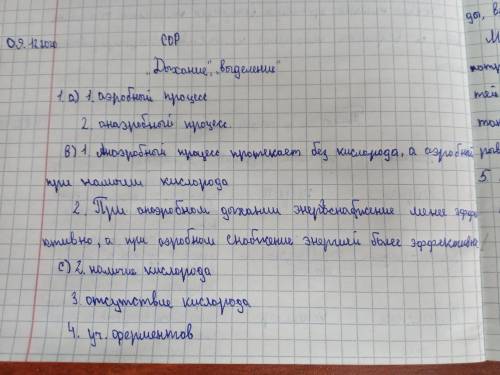 09.12.2020 СОР
"Дыхание", "выделение"
1. а) 1. аэробный процесс
2. анаэробный процесс.
в) 1. Анаэробный процесс протекает без кислорода, а аэробный
при наличии кислорода
2. При анаэробном дыхании энергоснабжение менее эффе
ктивно, а при аэробном снабжение энергией более эффективна
с) 2. наличие кислорода
3. отсутствие кислорода
4. уч. ферментов
ды, в
М
потр
тей
то
рав
5